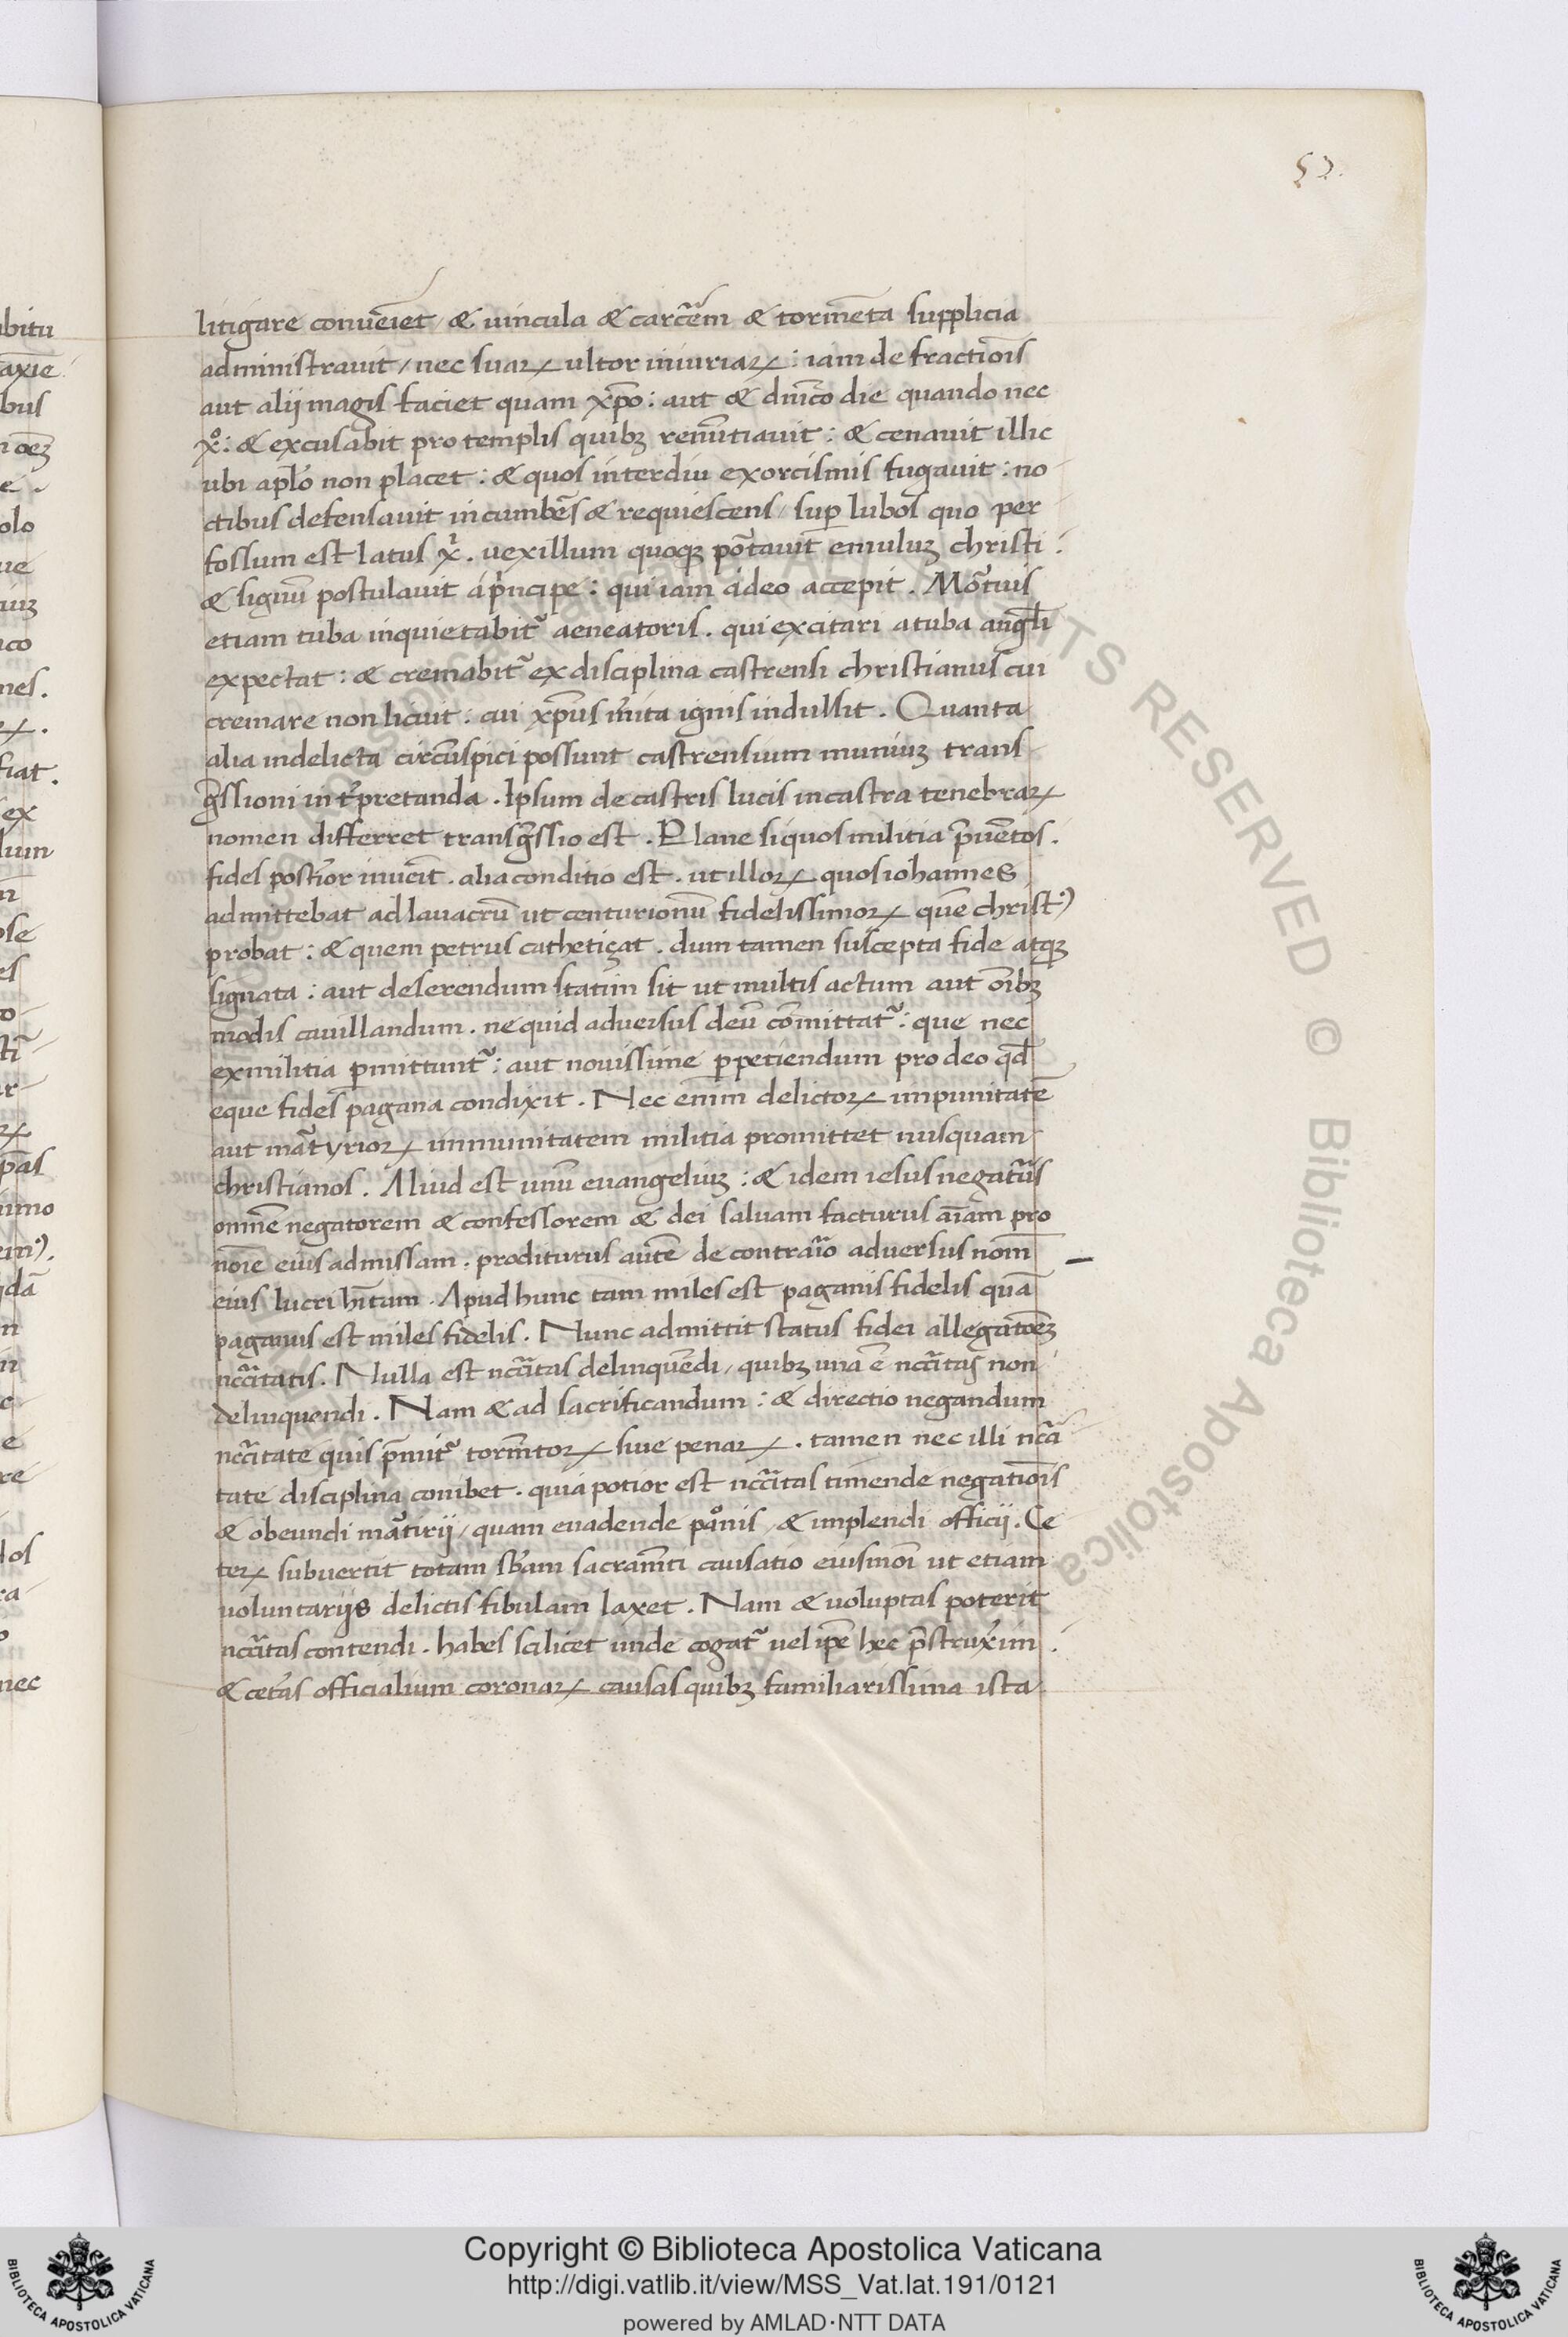 52.
litigare conueīet / & uincula & carcẽm & tormēta supplicia
administrauit / nec suaꝝ ultor iniuriaꝝ : iam de fractiōis
aut alij magis faciet quam xp̄o : aut & dn̄ico die quando nec
xͦ : & excusabit pro templis quibꝫ renūtiauit : & cenauit illic
ubi aplo̅ non placet : & quos interdiu exorcismis fugauit : no
ctibus defensauit incumbēs & requiescens / suꝑ lubos quo per
fossum est latus xⁱ . uexillum quoqꝫ portauit emuluꝫ christi :
& signū postulauit a pⁱncipe : qui iam adeo accepit . Mortuis
etiam tuba inquietabitᷣ aeneatoris . qui excitari a tuba angl̄i
expectat : & cremabitᷣ ex disciplina castrensi christianus cui
cremare non licuit : cui xp̄us mīta ignis indulsit . Quanta
alia indelicta circūspici possunt castrensium muniuꝫ trans
gs̄sioni intᷣpretanda . Ipsum de castris lucis in castra tenebraꝝ
nomen differret transgs̄sio est . Plane siquos militia p̄uētos .
fides postⁱor inuēit . alia conditio est . ut illoꝝ quos iohannes
admittebat ad lauacrū ut centurionū fidelissimoꝝ quē christꝰ
probat : & quem petrus cathetiçat . dum tamen suscepta fide atqꝫ
signata : aut deserendum statim sit ut multis actum aut oībꝫ
modis cauillandum . ne quid aduersus deū cōmittatᷣ : que nec
ex militia ꝑmittuntᷣ : aut nouissime ꝑpetiendum pro deo qd̄
eque fides pagana condixit . Nec enim delictoꝝ impunitatē
aut martyrioꝝ immunitatem militia promittet nusquam
christianos . Aliud est unū euangeliuꝫ : & idem iesus negatᷣus
omnē negatorem & confessorem & dei saluam facturus aīam pro
noīe eius admissam . proditurus autē de contraⁱo aduersus nom̄
eius lucri hītam . Apud hunc tam miles est paganis fidelis quā
paganus est miles fidelis . Nunc admittit status fidei allegatōeꝫ
ncc̄itatis . Nulla est ncc̄itas delinquēdi / quibꝫ una ē ncc̄itas non
delinquendi . Nam & ad sacrificandum : & directio negandum
ncc̄itate quis p̄mitᷣ torm̄toꝝ siue penaꝝ . tamen nec illi ncc̄i
tate disciplina conibet . quia potior est ncc̄itas timende negatiōis
& obeundi martirij / quam euadende pͦnis / & implendi officij . Ce
teꝝ subuertit totam sb̄am sacram̄ti causatio eiusmōi ut etiam
uoluntarijs delictis fibulam laxet . Nam & uoluptas poterit
ncc̄itas contendi . habes scilicet unde cogatᷣ uel ip̄e hec p̄struxᷣim .
& cetᷣas officialium coronaꝝ causas quibꝫ familiarissima ista
ALL RIGHTS RESERVED © Biblioteca Apostolica
Copyright © Biblioteca Apostolica Vaticana
http://digi.vatlib.it/view/MSS_Vat.lat.191/0121
powered by AMLAD·NTT DATA
BIBLIOTECA APOSTOLICA VATICANA
BIBLIOTECA APOSTOLICA VATICANA